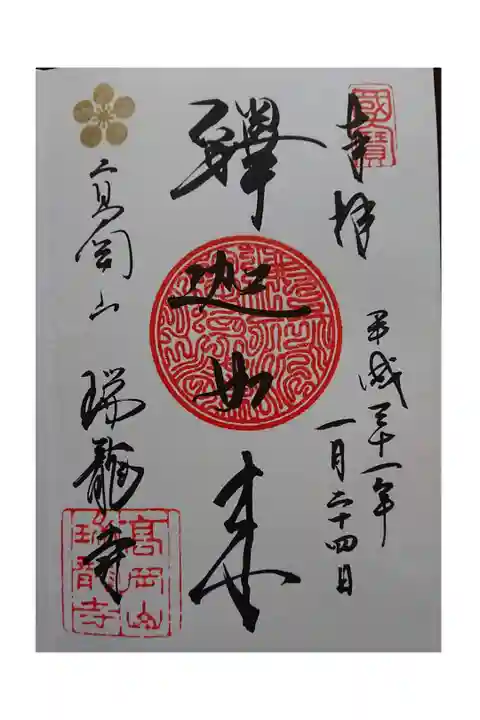 國寶
奉拝
平成三十一年
一月二十四日
釋迦如来
高岡山 瑞龍寺
高岡山
瑞龍寺